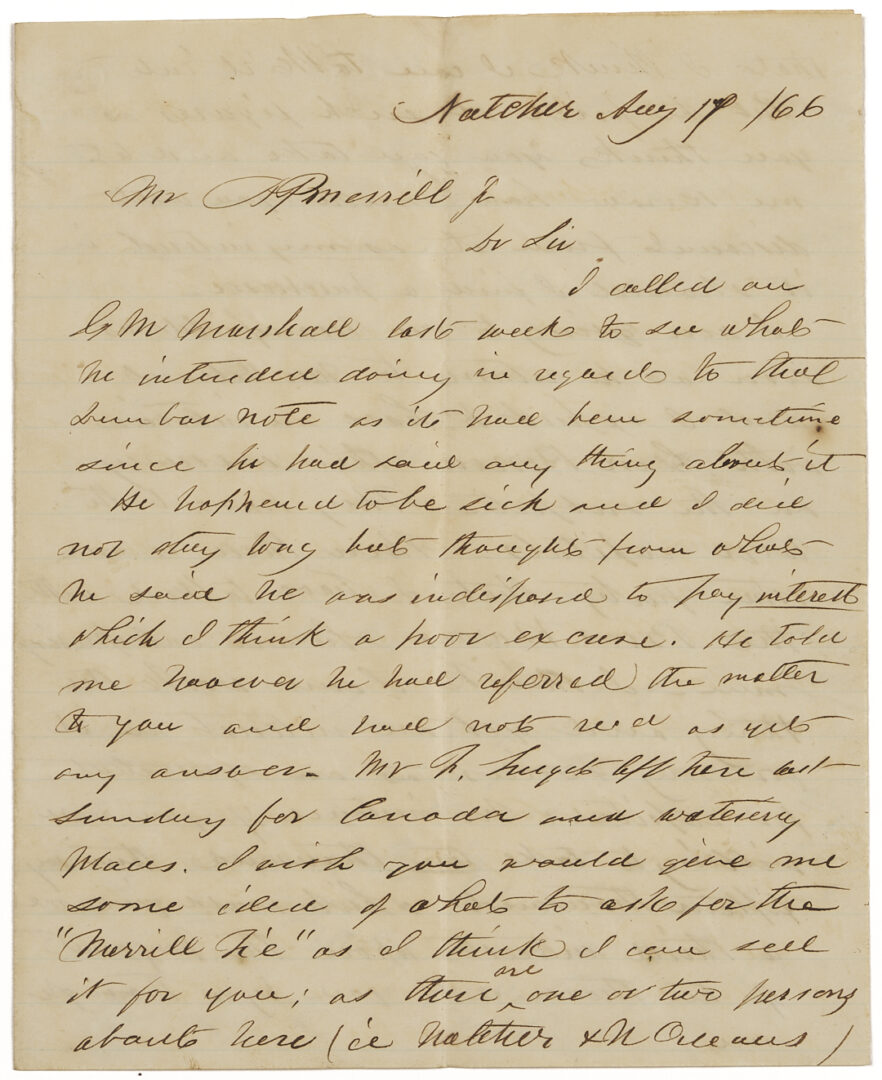 Natchez Aug 17 /66
Mr AP Merrill Jr
Dr Sir
I called on
G M Marshall last week to see what
he intended doing in regard to that
Dunbar note as it had been sometime
since he had said any thing about it
He happened to be sick and I did
not stay long but thought from what
he said he was indisposed to pay interest
which I think a poor excuse. He told
me however he had referred the matter
to you and had not recd as yet
any answer. Mr F. Surget left here last
Sunday for Canada and watering
places. I wish you would give me
some idea of what to ask for the
"Merrill Pl'e" as I think I can sell
it for you; as there are one or two persons
about here (ie Natchez & N Orleans)